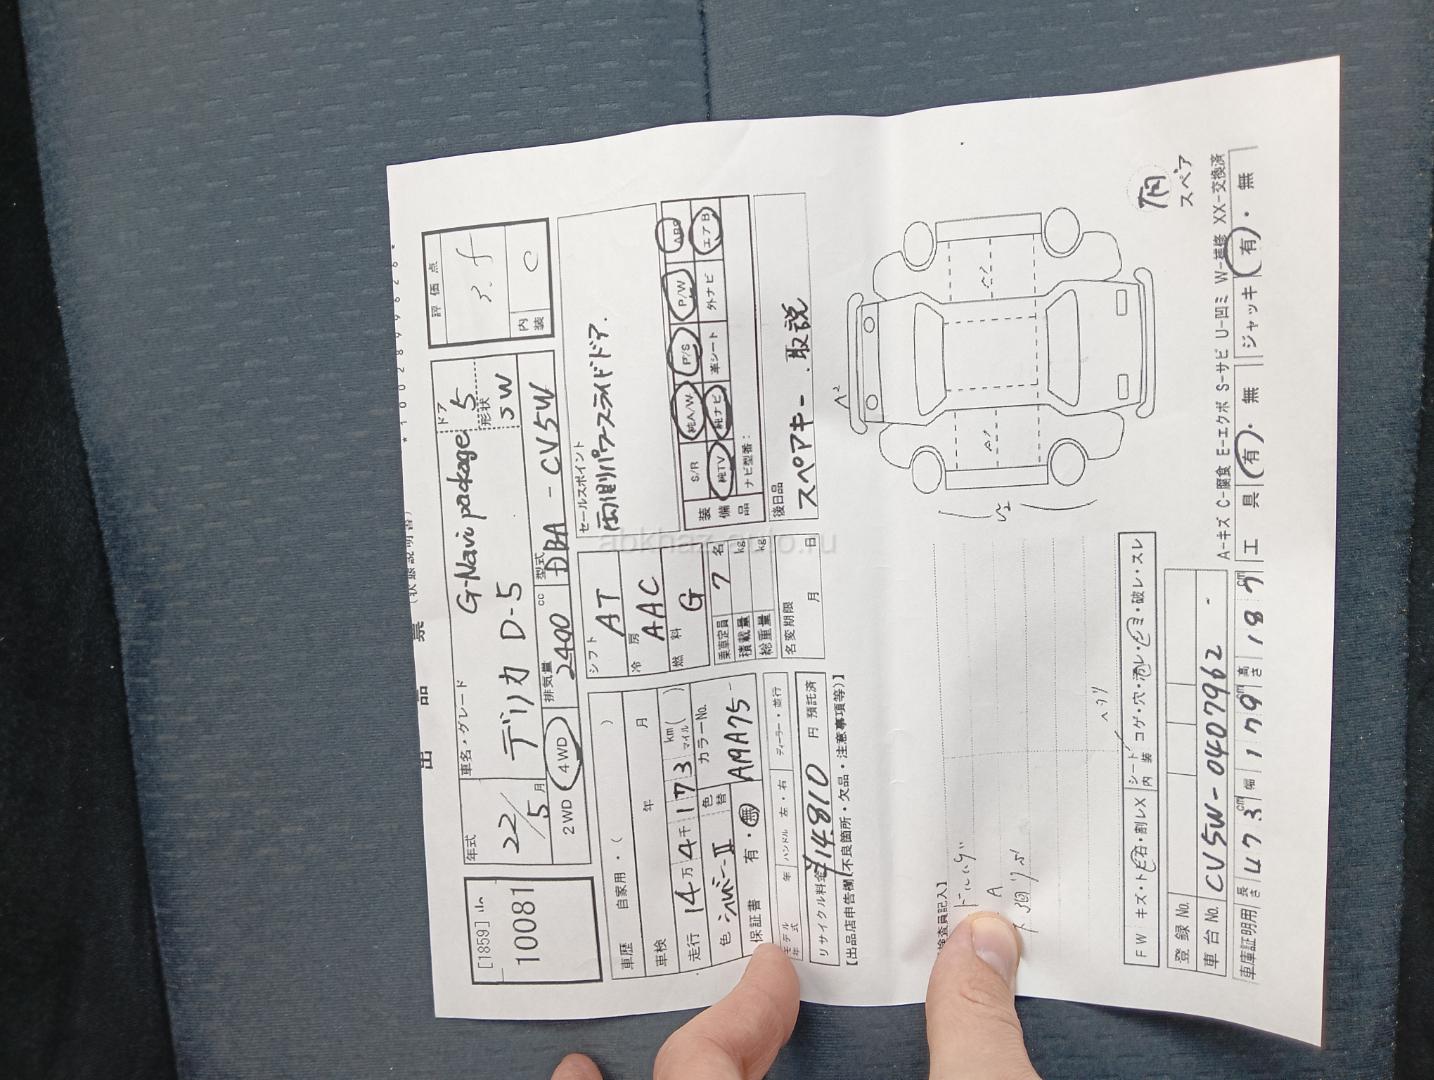 出品票(状態説明書)
*1002899626*
[1859]
10081
年式
22/5月
車名・グレード
G-Navi package
デリカ D-5
ドア
5
形状
5W
2WD
4WD
排気量
2400 cc
型式
DBA - CV5W
評価点
3.5
内装
C
車歴
自家用・( )
車検
年
月
走行
14万4千173
km
マイル
( )
色
シルバーII
色替
カラーNo.
AMA75
保証書
有・無
モデル年式
年
ハンドル
左・右
ディーラー・並行
リサイクル料金
¥14810
円
預託済
シフト
AT
冷房
AAC
燃料
G
乗車定員
7
名
積載量
kg
総重量
kg
名変期限
月
日
セールスポイント
両側パワースライドドア.
装備品
S/R
純A/W
P/S
P/W
ABS
純TV
純ナビ
革シート
外ナビ
エアB
ナビ型番:
後日品
スペアキー. 取説
【出品店申告欄(不良箇所・欠品・注意事項等)】
検査員記入】
A
ヘタリ
A2
スペア
FW
キズ・ト石・割レX
シート
内装
コゲ・穴・汚レ・シミ・破レ・スレ
登録No.
車台No.
CV5W-0407962
A-キズ C-腐食 E-エクボ S-サビ U-凹ミ W-補修 XX-交換済
車庫証明用
長さ
473
cm
幅
179
cm
高さ
187
cm
工具
有・無
ジャッキ
有・無
abkhaz-auto.ru